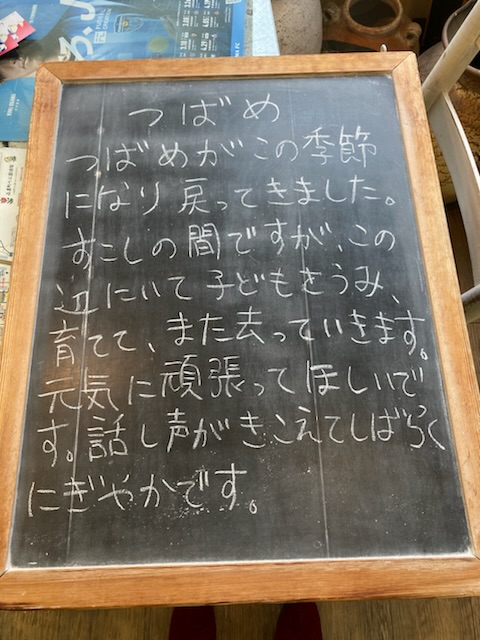 つばめ
つばめがこの季節
になり戻ってきました。
すこしの間ですが、この
辺にいて子どもをうみ、
育てて、また去っていきます。
元気に頑張ってほしいで
す。話し声がきこえてしばらく
にぎやかです。